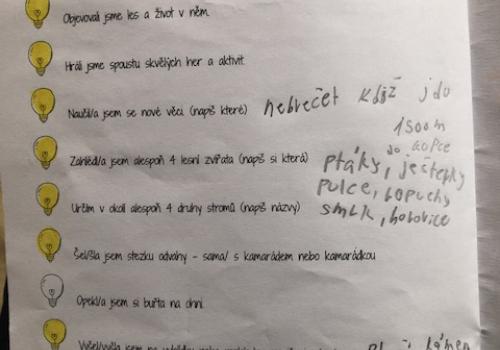 Objevovali jsme les a život v něm.
Hráli jsme spoustu skvělých her a aktivit.
Naučil/a jsem se nové věci (napiš které) nebrečet když jdu
1500m
do kopce
Zahlédl/a jsem alespoň 4 lesní zvířata (napiš si která) ptáky, ještěrky
pulce, ropuchy
Určím v okolí alespoň 4 druhy stromů (napiš názvy) smrk, borovice
Šel/šla jsem stezku odvahy - sama/ s kamarádem nebo kamarádkou
Opekl/a jsem si buřta na ohni.
Vyšel/vyšla jsem na